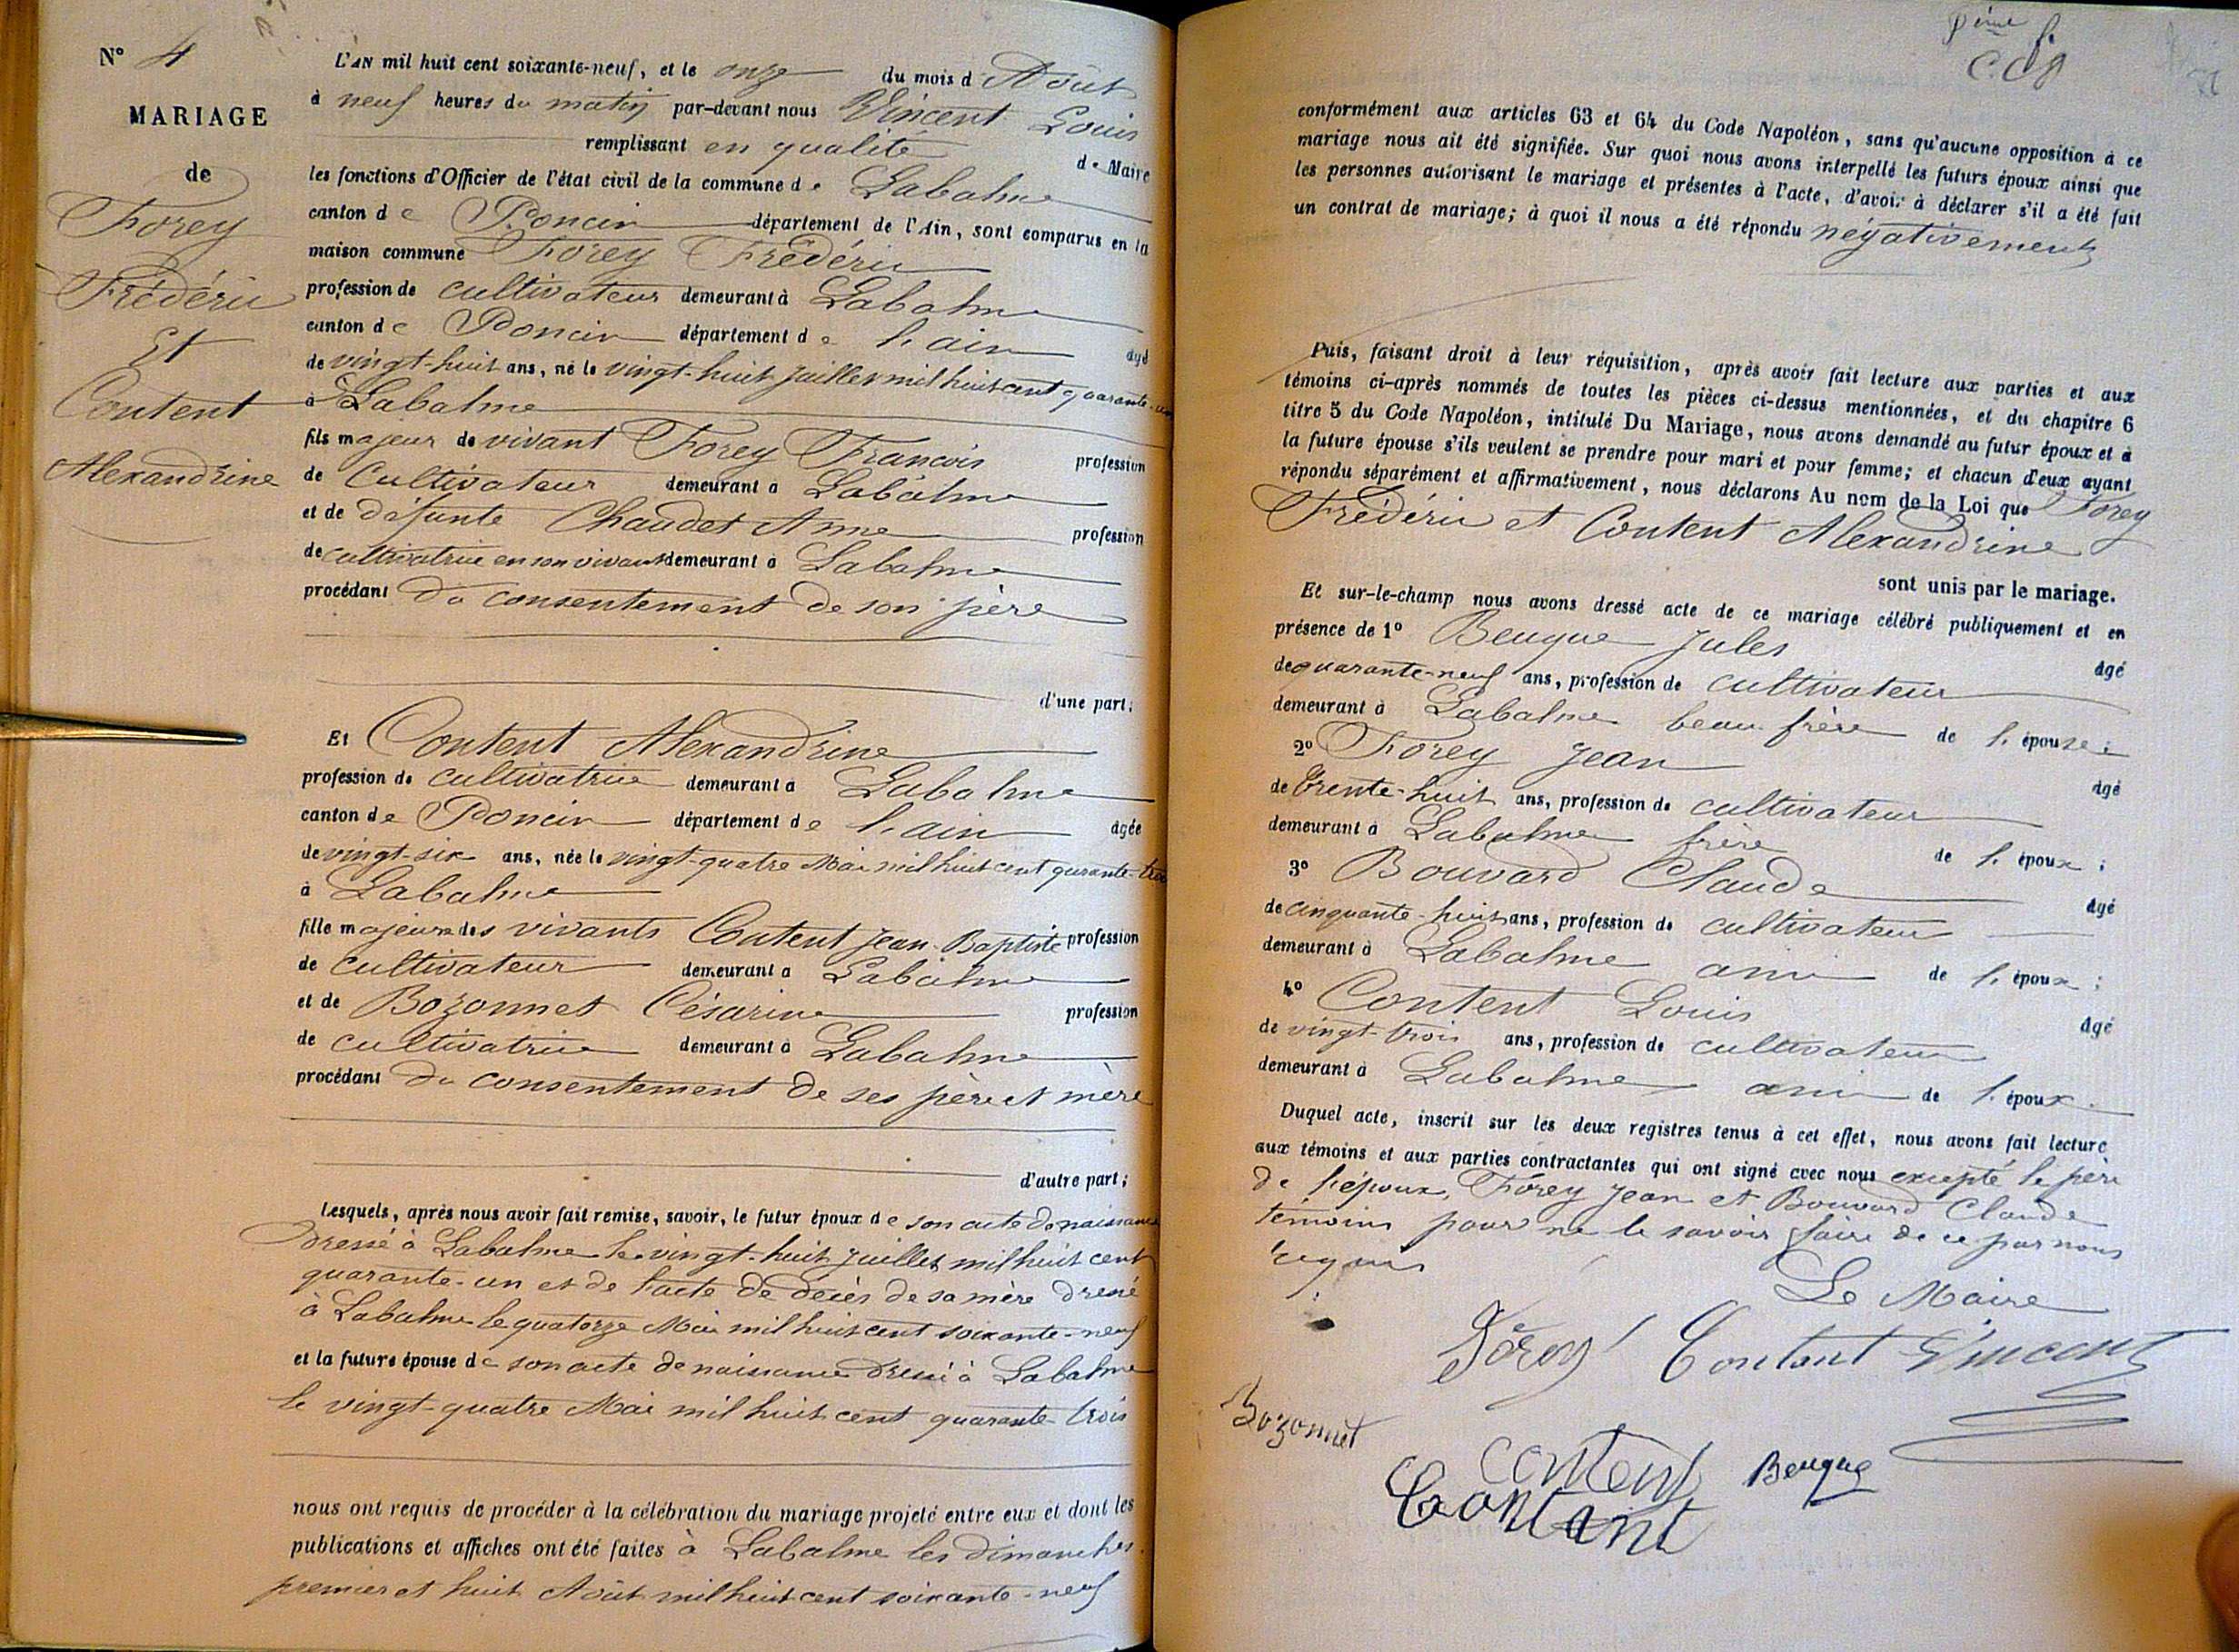 N° 4
MARIAGE
de
Forey
Frédéric
Et
Content
Alexandrine
L'AN mil huit cent soixante-neuf, et le onze du mois d'Août
à neuf heures du matin par-devant nous Vincent Louis
remplissant en qualité de Maire
les fonctions d'Officier de l'état civil de la commune de Labalme
canton de Poncin département de l'Ain, sont comparus en la
maison commune Forey Frédéric
profession de cultivateur demeurant à Labalme
canton de Poncin département de l'ain âgé
de vingt-huit ans, né le vingt-huit juillet mil huit cent quarante-un
à Labalme
fils majeur de vivant Forey Francois profession
de Cultivateur demeurant à Labalme
et de défunte Chaudet Anne profession
de cultivatrice en son vivant demeurant à Labalme
procédant du consentement de son père
d'une part;
Et Content Alexandrine
profession de cultivatrice demeurant à Labalme
canton de Poncin département de l'ain âgée
de vingt-six ans, née le vingt-quatre Mai mil huit cent quarante-trois
à Labalme
fille majeure des vivants Content Jean-Baptiste profession
de cultivateur demeurant à Labalme
et de Bozonnet Césarine profession
de cultivatrice demeurant à Labalme
procédant du consentement de ses père et mère
d'autre part;
Lesquels, après nous avoir fait remise, savoir, le futur époux de son acte de naissance
dressé à Labalme le vingt-huit juillet mil huit cent
quarante-un et de l'acte de décès de sa mère dressé
à Labalme le quatorze Mai mil huit cent soixante-neuf
et la future épouse de son acte de naissance dressé à Labalme
le vingt-quatre Mai mil huit cent quarante-trois
nous ont requis de procéder à la célébration du mariage projeté entre eux et dont les
publications et affiches ont été faites à Labalme les dimanches
premier et huit Août mil huit cent soixante-neuf
conformément aux articles 63 et 64 du Code Napoléon, sans qu'aucune opposition à ce
mariage nous ait été signifiée. Sur quoi nous avons interpellé les futurs époux ainsi que
les personnes autorisant le mariage et présentes à l'acte, d'avoir à déclarer s'il a été fait
un contrat de mariage; à quoi il nous a été répondu négativement
Puis, faisant droit à leur réquisition, après avoir fait lecture aux parties et aux
témoins ci-après nommés de toutes les pièces ci-dessus mentionnées, et du chapitre 6
titre 5 du Code Napoléon, intitulé Du Mariage, nous avons demandé au futur époux et à
la future épouse s'ils veulent se prendre pour mari et pour femme; et chacun d'eux ayant
répondu séparément et affirmativement, nous déclarons Au nom de la Loi que Forey
Frédéric et Content Alexandrine
sont unis par le mariage.
Et sur-le-champ nous avons dressé acte de ce mariage célébré publiquement et en
présence de 1° Beugue Jules âgé
de quarante-neuf ans, profession de cultivateur
demeurant à Labalme beau-frère de l'épouse;
2° Forey Jean âgé
de trente-huit ans, profession de cultivateur
demeurant à Labalme frère de l'époux;
3° Bouvard Claude âgé
de cinquante-huit ans, profession de cultivateur
demeurant à Labalme ami de l'époux;
4° Content Louis âgé
de vingt-trois ans, profession de cultivateur
demeurant à Labalme ami de l'époux.
Duquel acte, inscrit sur les deux registres tenus à cet effet, nous avons fait lecture
aux témoins et aux parties contractantes qui ont signé avec nous excepté le père
de l'époux, Forey Jean et Bouvard Claude
témoins pour ne le savoir faire de ce par nous
requis
Le Maire
Forey Content Vincent
Bozonnet
Content Beugue
Contant